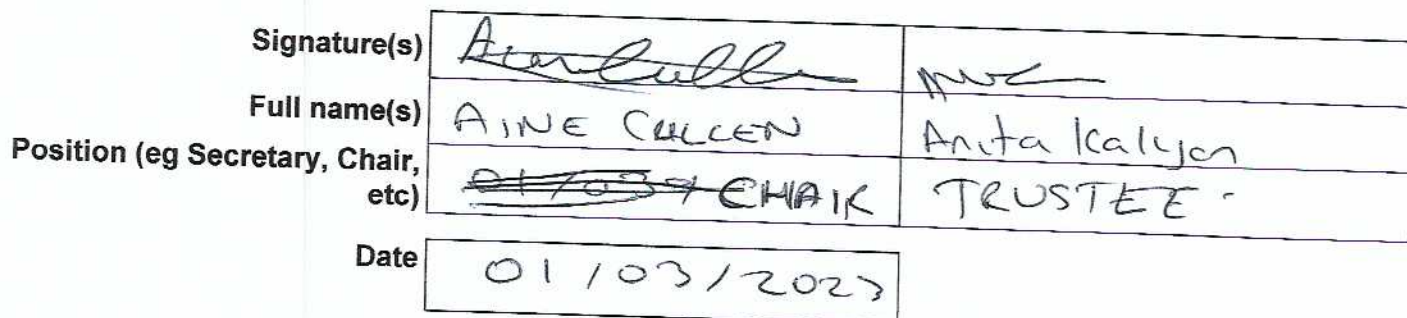 Signature(s)
Full name(s) AINE CULLEN Anita Kalyan
Position (eg Secretary, Chair, CHAIR TRUSTEE
etc)
Date 01/03/2023